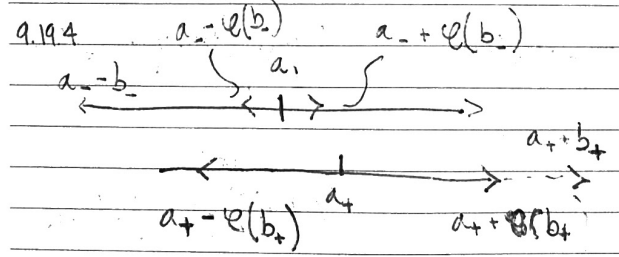 9.19.4 a_- - φ(b_-) a_- + φ(b_-)
a_- - b_-
a_+ + b_+
a_+
a_+ - φ(b_+) a_+ + φ(b_+